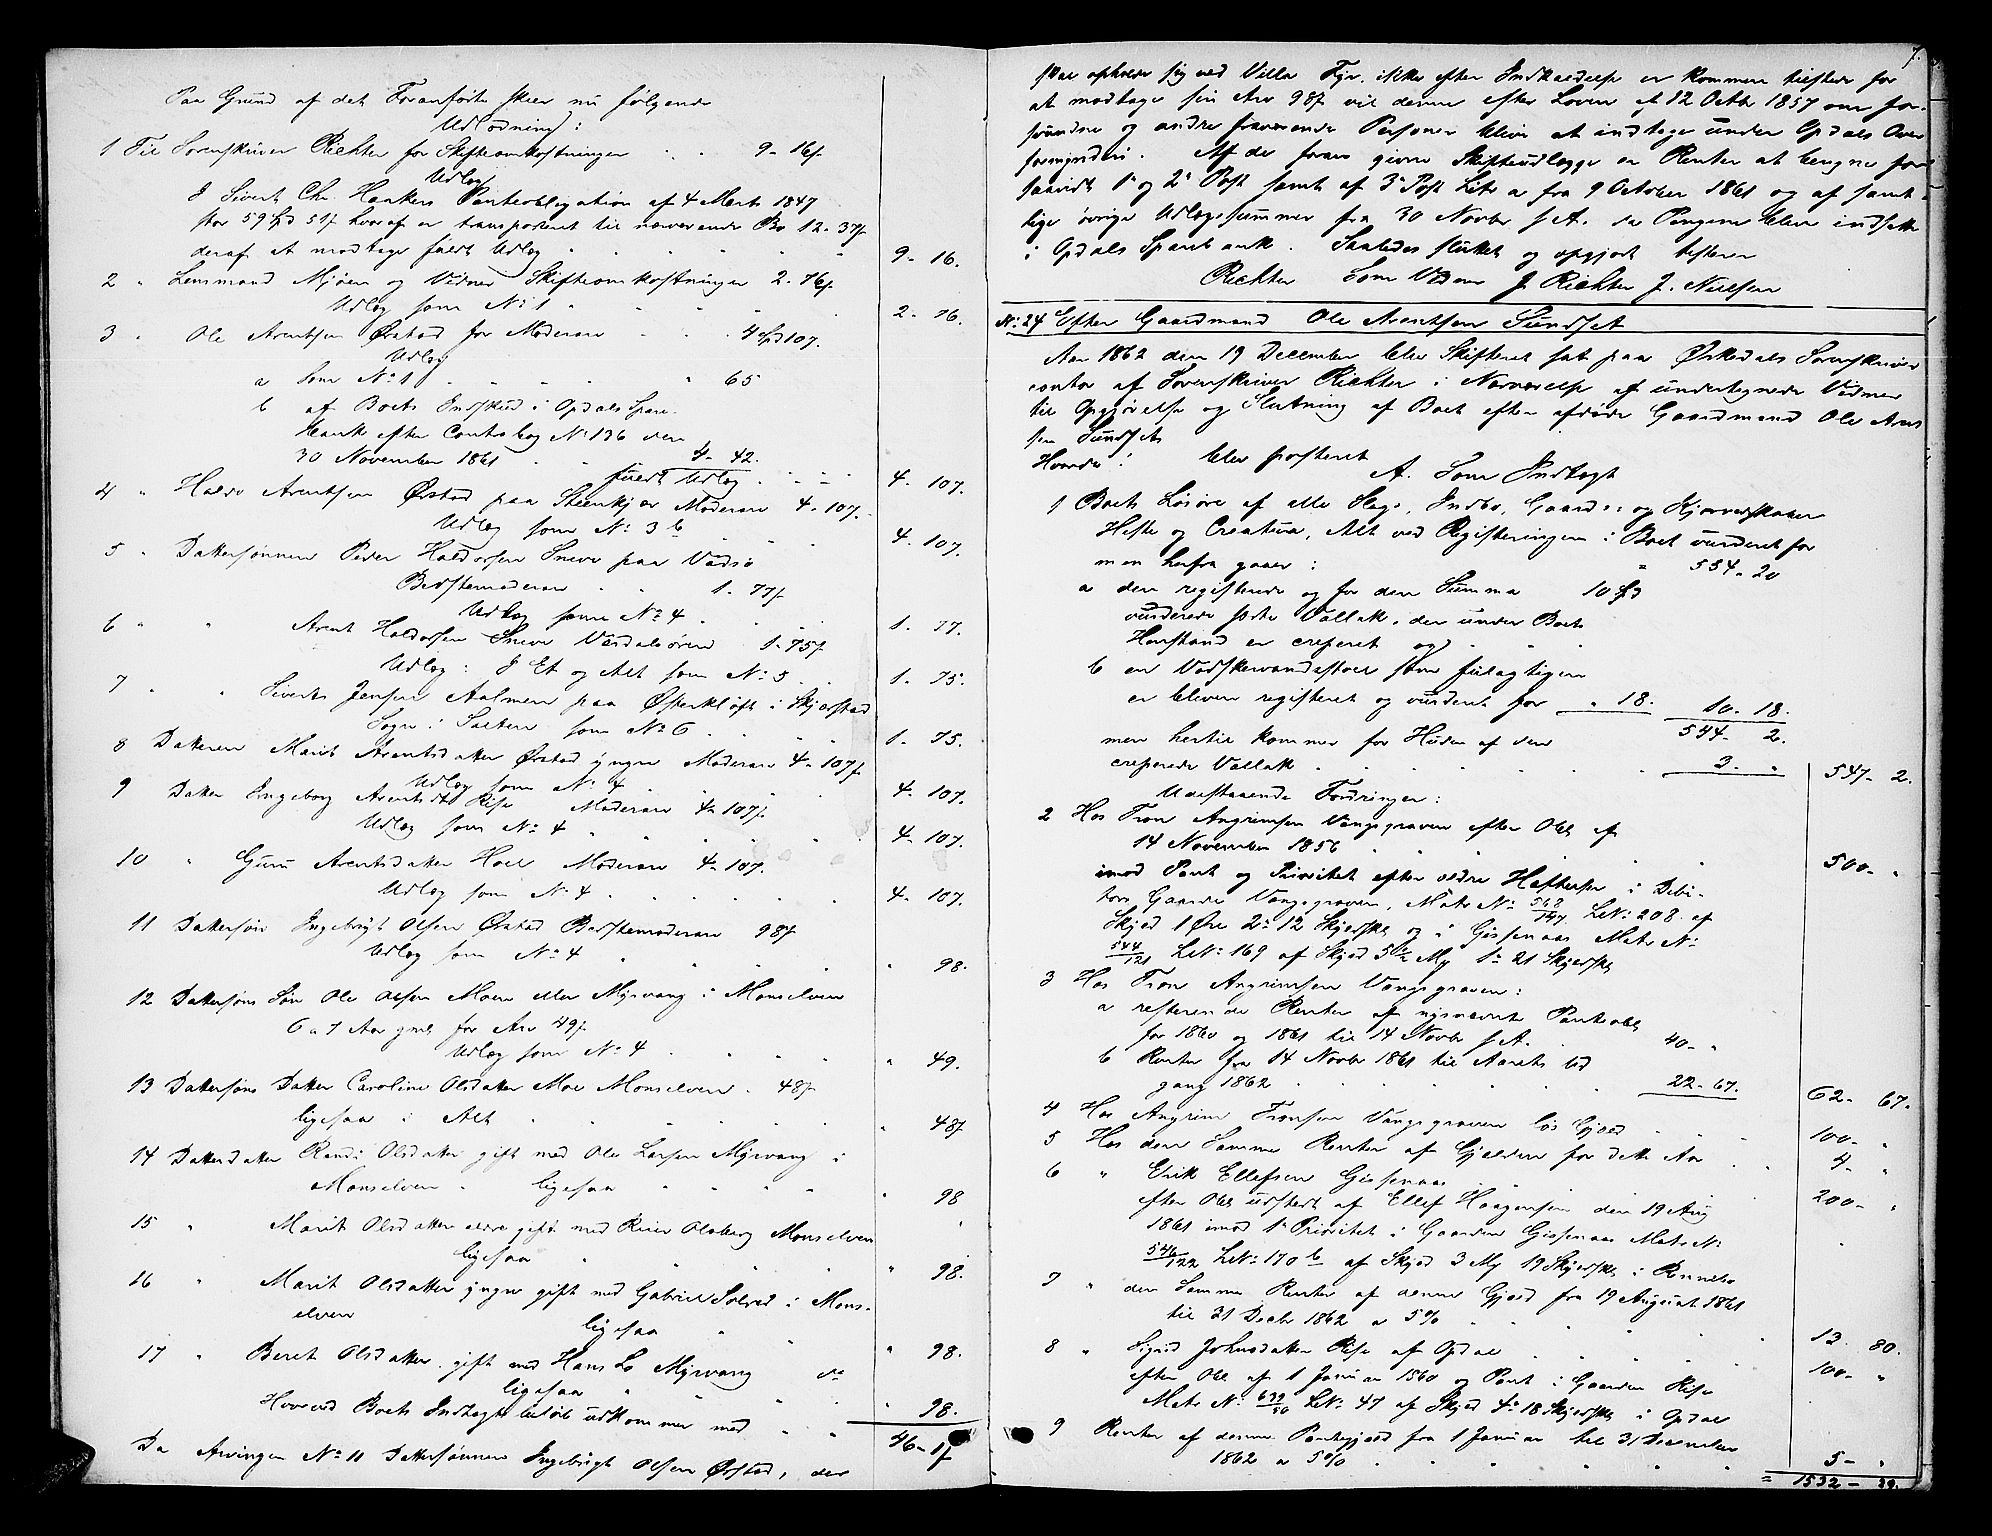 Paa Grund af det Foranførte skeer nu følgende
Udlodning:
1 Til Sorenskriver Richter for Skifteomkostninger 9-16ſ
Udlæg
I Sivert Chr. Haakers Panteobligation af 4 Marts 1847
stor 59 Spd 51ſ hvoraf er transporteret til nærværende Bo 12-37ſ
deraf at modtage fuldt Udlæg 9-16.
2 " Lensmand Mjøen og Vidner Skifteomkostninger 2-76ſ
Udlæg som No 1 2-76.
3 " Ole Arentsen Ørstad for Mødrearv 4 Spd 107.
Udlæg
a Som No 1 " 65
b af Boets Indskud i Opdals Spare-
bank efter Contrabog No 136 den
30 November 1861 4-42.
fuldt Udlæg 4-107.
4 " Haldo Arentsen Ørstad paa Steenkjær Mødrearv 4-107.
Udlæg som No 3 b 4-107.
5 " Dattersønnen Peder Haldorsen Sneve paa Vadsø
Bedstemoderarv 1-77ſ
Udlæg som No 4 1-77.
6 " " Arent Haldorsen Sneve Værdalsøren 1-75ſ
Udlæg: I Et og Alt som No 5 1-75.
7 " " Siverts Jensen Aalmen paa Østerkløft i Skjerstad
Sogn i Salten som No 6 1-75.
8 Datteren Marit Arentsdatter Ørstad yngre Moderarv 4-107ſ
Udlæg som No 4 4-107.
9 Datter Ingeborg Arentsdt Rise Moderarv 4-107ſ
Udlæg som No 4 4-107.
10 " Guru Arentsdatter Hoel Moderarv 4-107.
Udlæg som No 4 4-107.
11 Dattersøn Ingebrigt Olsen Ørstad Bedstemoderarv 98ſ
Udlæg som No 4 " 98.
12 Dattersøns Søn Ole Olsen Moen eller Myrvang i Monselven
6 a 7 Aar gml. for Arv 49ſ
Udlæg som No 4 " 49.
13 Dattersøns Datter Caroline Olsdatter Moe Monselven 48ſ
ligesaa i Alt " 48ſ
14 Datterdatter Randi Olsdatter gift med Ole Larsen Myrvang i
Monselven ligesaa " 98
15 " Marit Olsdatter eldre gift med Peder Olsborg Monselven
ligesaa " 98.
16 " Marit Olsdatter yngre gift med Gabriel Solvod i Mons-
elven ligesaa " 98.
17 " Beret Olsdatter gift med Hans Lo Myrvang do
ligesaa " 98.
Hvorved Boets Indtægtsbeløb udkommer med 46-17
Da Arvingen No 11 Dattersønnen Ingebrigt Olsen Ørstad, der
7.
skal opholde sig ved Villa Fyr, ikke efter Indkaldelse er kommen tilstede for
at modtage sin Arv 98ſ vil denne efter Loven af 12 Octbr 1857 om for-
svundne og andre fraværende Personer blive at indtage under Opdals Over
formynderi. Af de foran givne Skifteudlægge er Renter at beregne for
saavidt 1e og 2e Post samt af 3e Post Litr a fra 9 October 1861 og af samt-
lige øvrige Udlægssummer fra 30 Novbr s. A. da Pengene bleve indsatte
i Opdals Sparebank. Saaledes sluttet og opgjort testerer
Richter Som Vidner J Richter J. Nielsen
No 24 Efter Gaardmand Ole Arentsen Sundset
Aar 1862 den 19 December blev Skifteret sat paa Ørkedals Sorenskriver
contor af Sorenskriver Richter i Nærværelse af undertegnede Vidner
til Opgjørelse og Slutning af Boet efter afdøde Gaardmand Ole Arnt
sen Sundset
Hvorda: blev posteret
A. Som Indtægt
1 Boets Løsøre af alle Slags, Indbo, Gaards- og Kjøreredskaber
Heste og Creatur, Alt ved Registeringen i Boet vurderet for
men herfra gaaer: " 554-20
a den registerede og for den Summa 10 Spd
vurderede sorte Vallak, den under Boets
Henstand er creperet og
b en Vadskevandsstoel som feilagtigen
er bleven registeret og vurderet for " 18. 10-18.
544-2.
men hertil kommer for Huden af den
creperede Vallak 3. " 547-2.
Udestaaende Fordringer:
2 Hos Tron Angrimsen Vangsgraven efter Obl. af
14 November 1856 500- "
imod Pant og Prioritet efter ældre Heftelser i Debi-
tors Gaarde Vangsgraven, Matr No 568/147 LNo 208 af
Skyld 1 Øre 2 12 Skjerfsk og i Gissenaas Matr No
544/121 LNo 169 af Skyld 5½ My 1 21 Skjerfsk
3 Hos Tron Angrimsen Vangsgraven:
a resterende Renter af nysnævnte Panteobl
for 1860 og 1861 til 14 Novbr s. A. 40- "
b Renter fra 14 Novbr 1861 til Aarets Ud
gang 1862 22-67. 62-67.
4 Hos Angrim Tronsen Vangsgraven løs Gjæld 100- "
5 Hos den Samme Renter af Gjælden for dette Aar 4- "
6 " Erik Ellefsen Gissenaas 200- "
efter Obl udstedt af Ellef Haagensen den 19 Aug
1861 imod 1e Prioritet i Gaarden Gissenaas Matr No
546/122 LNo 170 b af Skyld 3 My 19 Skjerfsk i Rennebo
7 " den Samme Renter af denne Gjæld fra 19 August 1861
til 31 Decbr 1862 a 5% 13. 80.
8 " Sigrid Johnsdatter Rise af Opdal 100- "
efter Obl af 1 Januar 1860 og Pant i Gaarden Rise
Matr No 632/50 LNo 47 af Skyld 4 18 Skjerfsk i Opdal
9 Renter af denne Pantegjæld fra 1 Januar til 31 December
1862 a 5% 5- "
= 1532- 29.